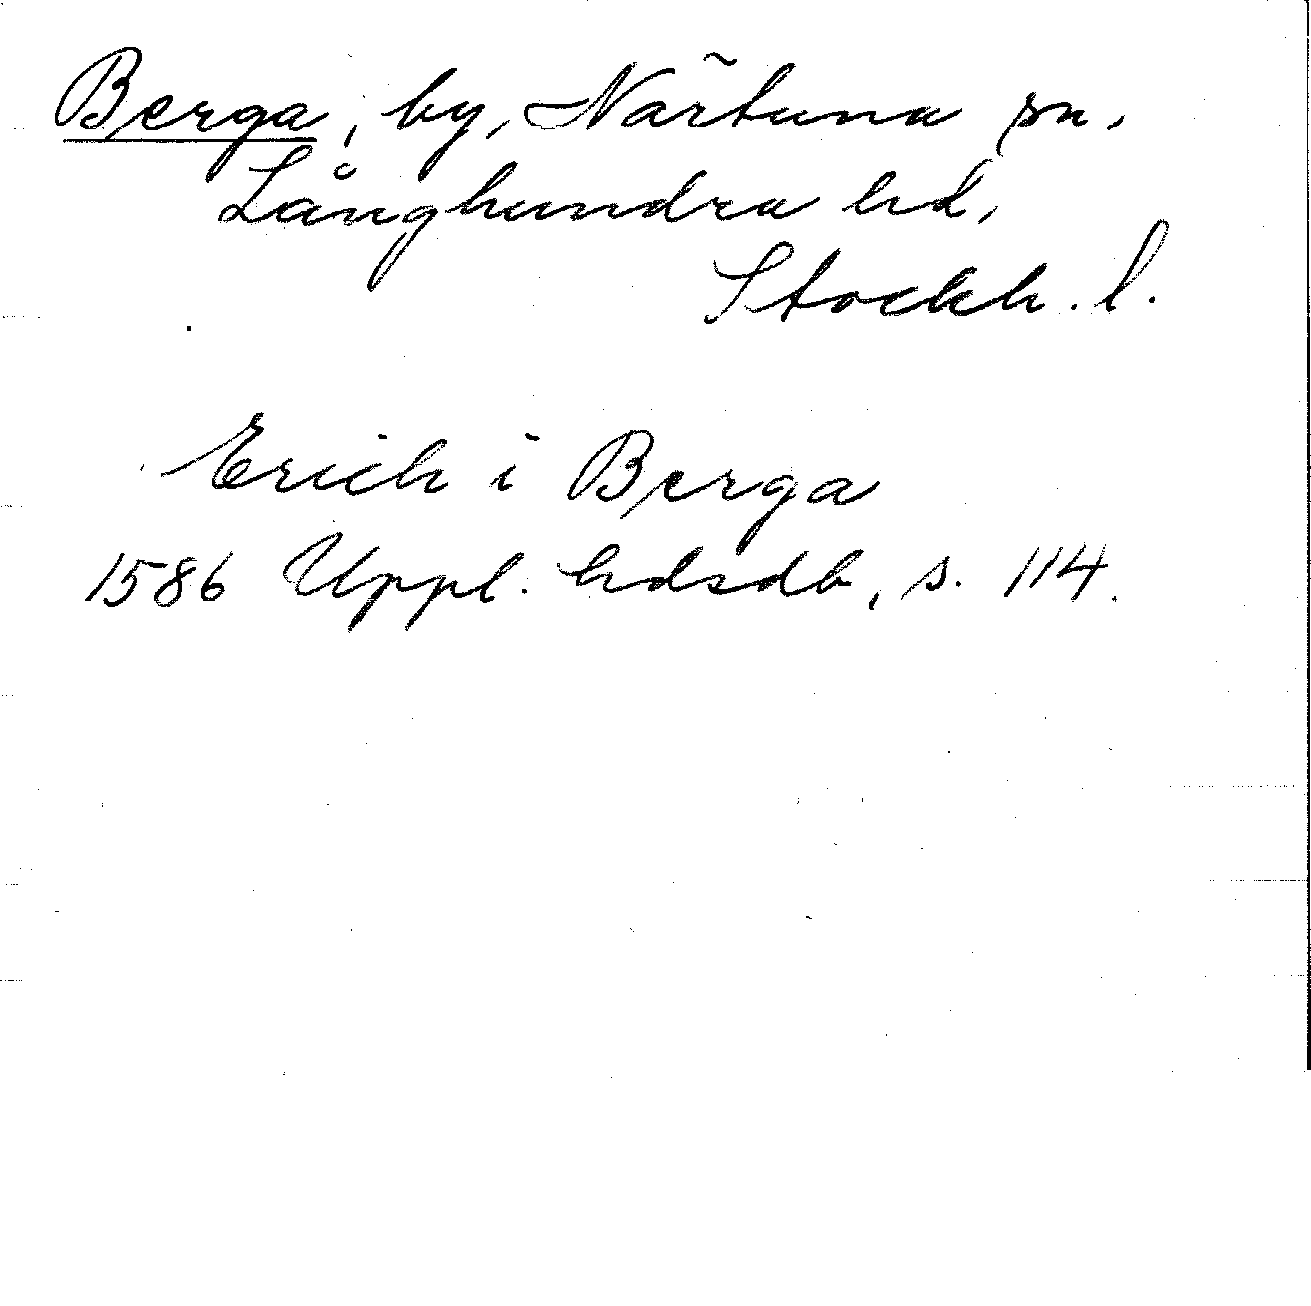 Berga, by, Närtuna sn,
Långhundra hd,
Stockh. l.
Erich i Berga
1586 Uppl. hdsdb, s. 114.